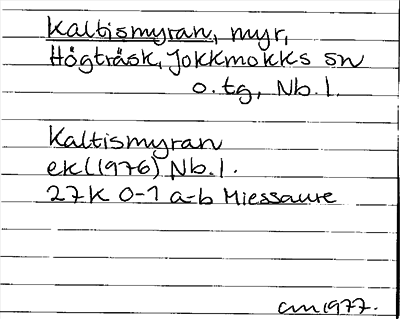 Kaltismyran, myr,
Högträsk, Jokkmokks sn
o. tg, Nb. l.
Kaltismyran
ek (1976) Nb. l.
27K 0-1 a-b Miessaure
am 1977.